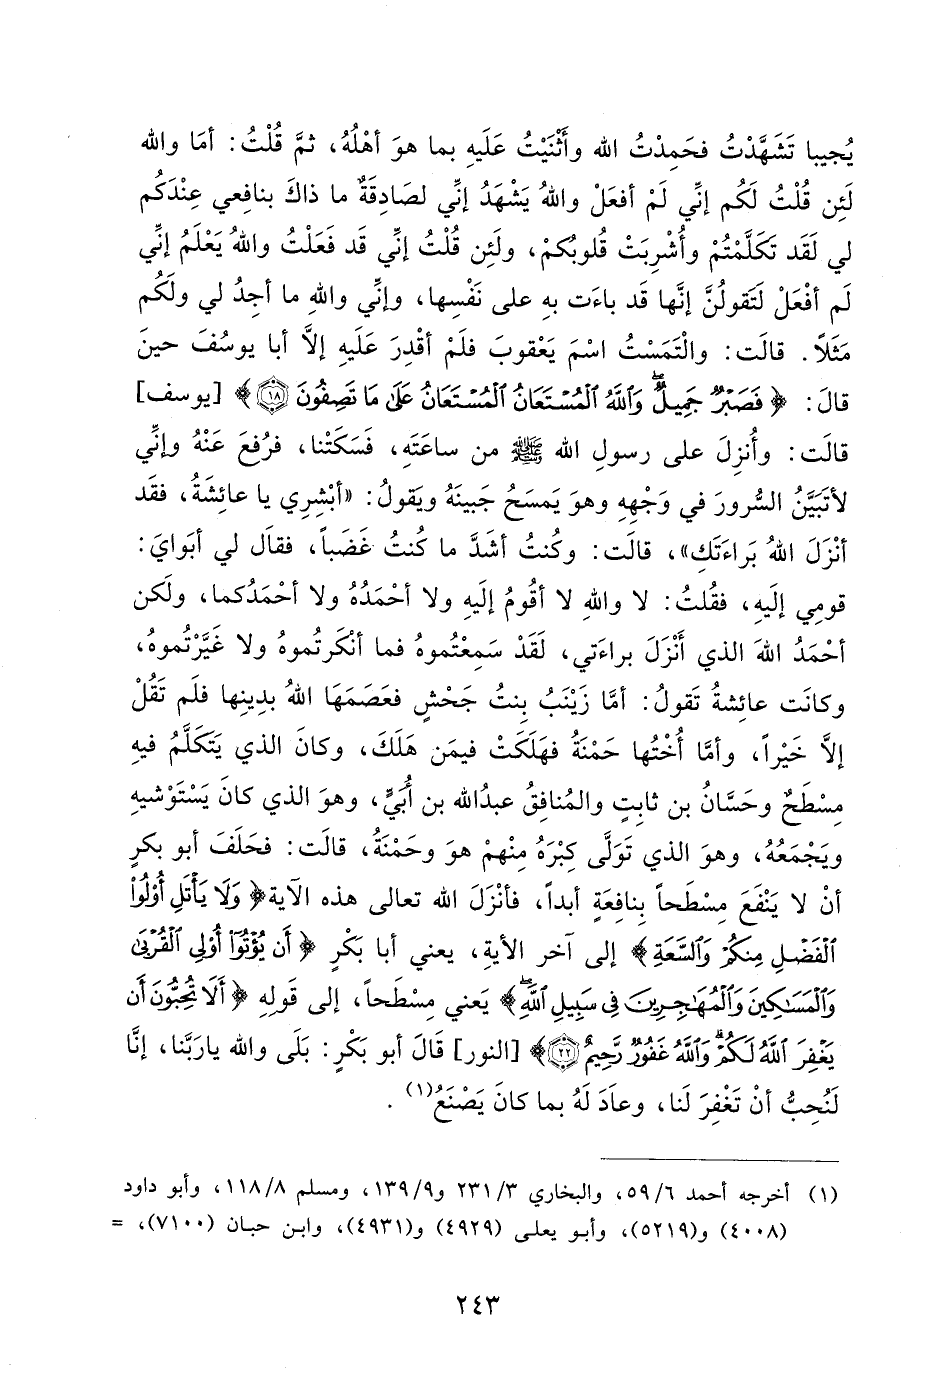 يُجيبا تَشَهَّدْتُ فحَمِدْتُ الله وأَثْنَيْتُ عَلَيهِ بما هوَ أهْلُهُ، ثمَّ قُلْتُ: أمَا والله
لَئِن قُلْتُ لَكُم إنِّي لَمْ أفعَلْ واللهُ يَشْهَدُ إنِّي لصَادِقَةٌ ما ذاكَ بنافعي عِنْدَكُم
لي لَقَد تَكَلَّمْتُمْ وأُشْرِبَتْ قُلوبُكمْ، ولَئِن قُلْتُ إنِّي قَد فَعَلْتُ واللهُ يَعْلَمُ إنِّي
لَم أفْعَلْ لَتَقولُنَّ إنَّها قَد باءَت بهِ على نَفْسِها، وإنِّي واللهِ ما أجِدُ لي ولَكُم
مَثَلاً. قالَت: والْتَمَسْتُ اسْمَ يَعْقوبَ فلَمْ أقْدِرَ عَلَيهِ إلاَّ أبا يوسُفَ حينَ
قالَ: ﴿ فَصَبْرٌ جَمِيلٌ ۖ وَٱللَّهُ ٱلْمُسْتَعَانُ ٱلْمُسْتَعَانُ عَلَىٰ مَا تَصِفُونَ ۝١٨ ﴾ [يوسف]
قالَت: وأُنزِلَ على رسولِ الله ﷺ من ساعَتَه، فَسَكَتْنا، فرُفعَ عَنْهُ وإنِّي
لأتَبَيَّنُ السُّرورَ في وَجْهِهِ وهوَ يَمسَحُ جَبينَهُ ويَقولُ: «أبْشِري يا عائشَةُ، فقَد
أنْزَلَ اللهُ بَراءَتَكِ»، قالَت: وكُنتُ أشَدَّ ما كُنتُ غَضَباً، فقالَ لي أبَوايَ:
قومِي إلَيهِ، فقُلتُ: لا واللهِ لا أقُومُ إلَيهِ ولا أحْمَدُهُ ولا أحْمَدُكما، ولَكن
أحْمَدُ اللهَ الذي أَنْزَلَ براءَتي، لَقَدْ سَمِعْتُموهُ فما أنْكَرتُموهُ ولا غَيَّرْتُموهُ،
وكانَت عائِشةُ تَقولُ: أمَّا زَيْنَبُ بِنتُ جَحْشٍ فعَصَمَها اللهُ بدِينِها فلَم تَقُلْ
إلاَّ خَيْراً، وأمَّا أُختُها حَمْنَةُ فهَلَكَتْ فيمَن هَلَكَ، وكانَ الذي يَتَكَلَّمُ فيهِ
مِسْطَحٌ وحَسَّانُ بن ثابتٍ والمُنافقُ عبدُالله بن أُبَيٍّ، وهوَ الذي كانَ يَسْتَوْشيهِ
ويَجْمَعُهُ، وهوَ الذي تَوَلَّى كِبْرَهُ مِنْهمْ هوَ وحَمْنَةُ، قالَت: فحَلَفَ أبو بكرٍ
أنْ لا يَنْفَعَ مِسْطَحاً بنافِعَةٍ أبداً، فأنْزَلَ الله تعالى هذه الآية﴿ وَلَا يَأْتَلِ أُو۟لُوا۟
ٱلْفَضْلِ مِنكُمْ وَٱلسَّعَةِ ﴾ إلى آخر الأية، يعني أبا بَكْرٍ ﴿ أَن يُؤْتُوٓا۟ أُو۟لِى ٱلْقُرْبَىٰ
وَٱلْمَسَٰكِينَ وَٱلْمُهَٰجِرِينَ فِى سَبِيلِ ٱللَّهِ ۖ ﴾ يَعني مِسْطَحاً، إلى قَولِهِ ﴿ أَلَا تُحِبُّونَ أَن
يَغْفِرَ ٱللَّهُ لَكُمْ ۗ وَٱللَّهُ غَفُورٌ رَّحِيمٌ ۝٢٢ ﴾ [النور] قالَ أبو بَكْرٍ: بَلَى والله ياربَّنا، إنَّا
لَنُحِبُّ أنْ تَغْفِرَ لنا، وعادَ لَهُ بما كانَ يَصْنَعُ(١).
(١) أخرجه أحمد ٥٩/٦، والبخاري ٢٣١/٣ و١٣٩/٩، ومسلم ١١٨/٨، وأبو داود
(٤٠٠٨) و(٥٢١٩)، وأبو يعلى (٤٩٢٩) و(٤٩٣١)، وابن حبان (٧١٠٠)، =
٢٤٣